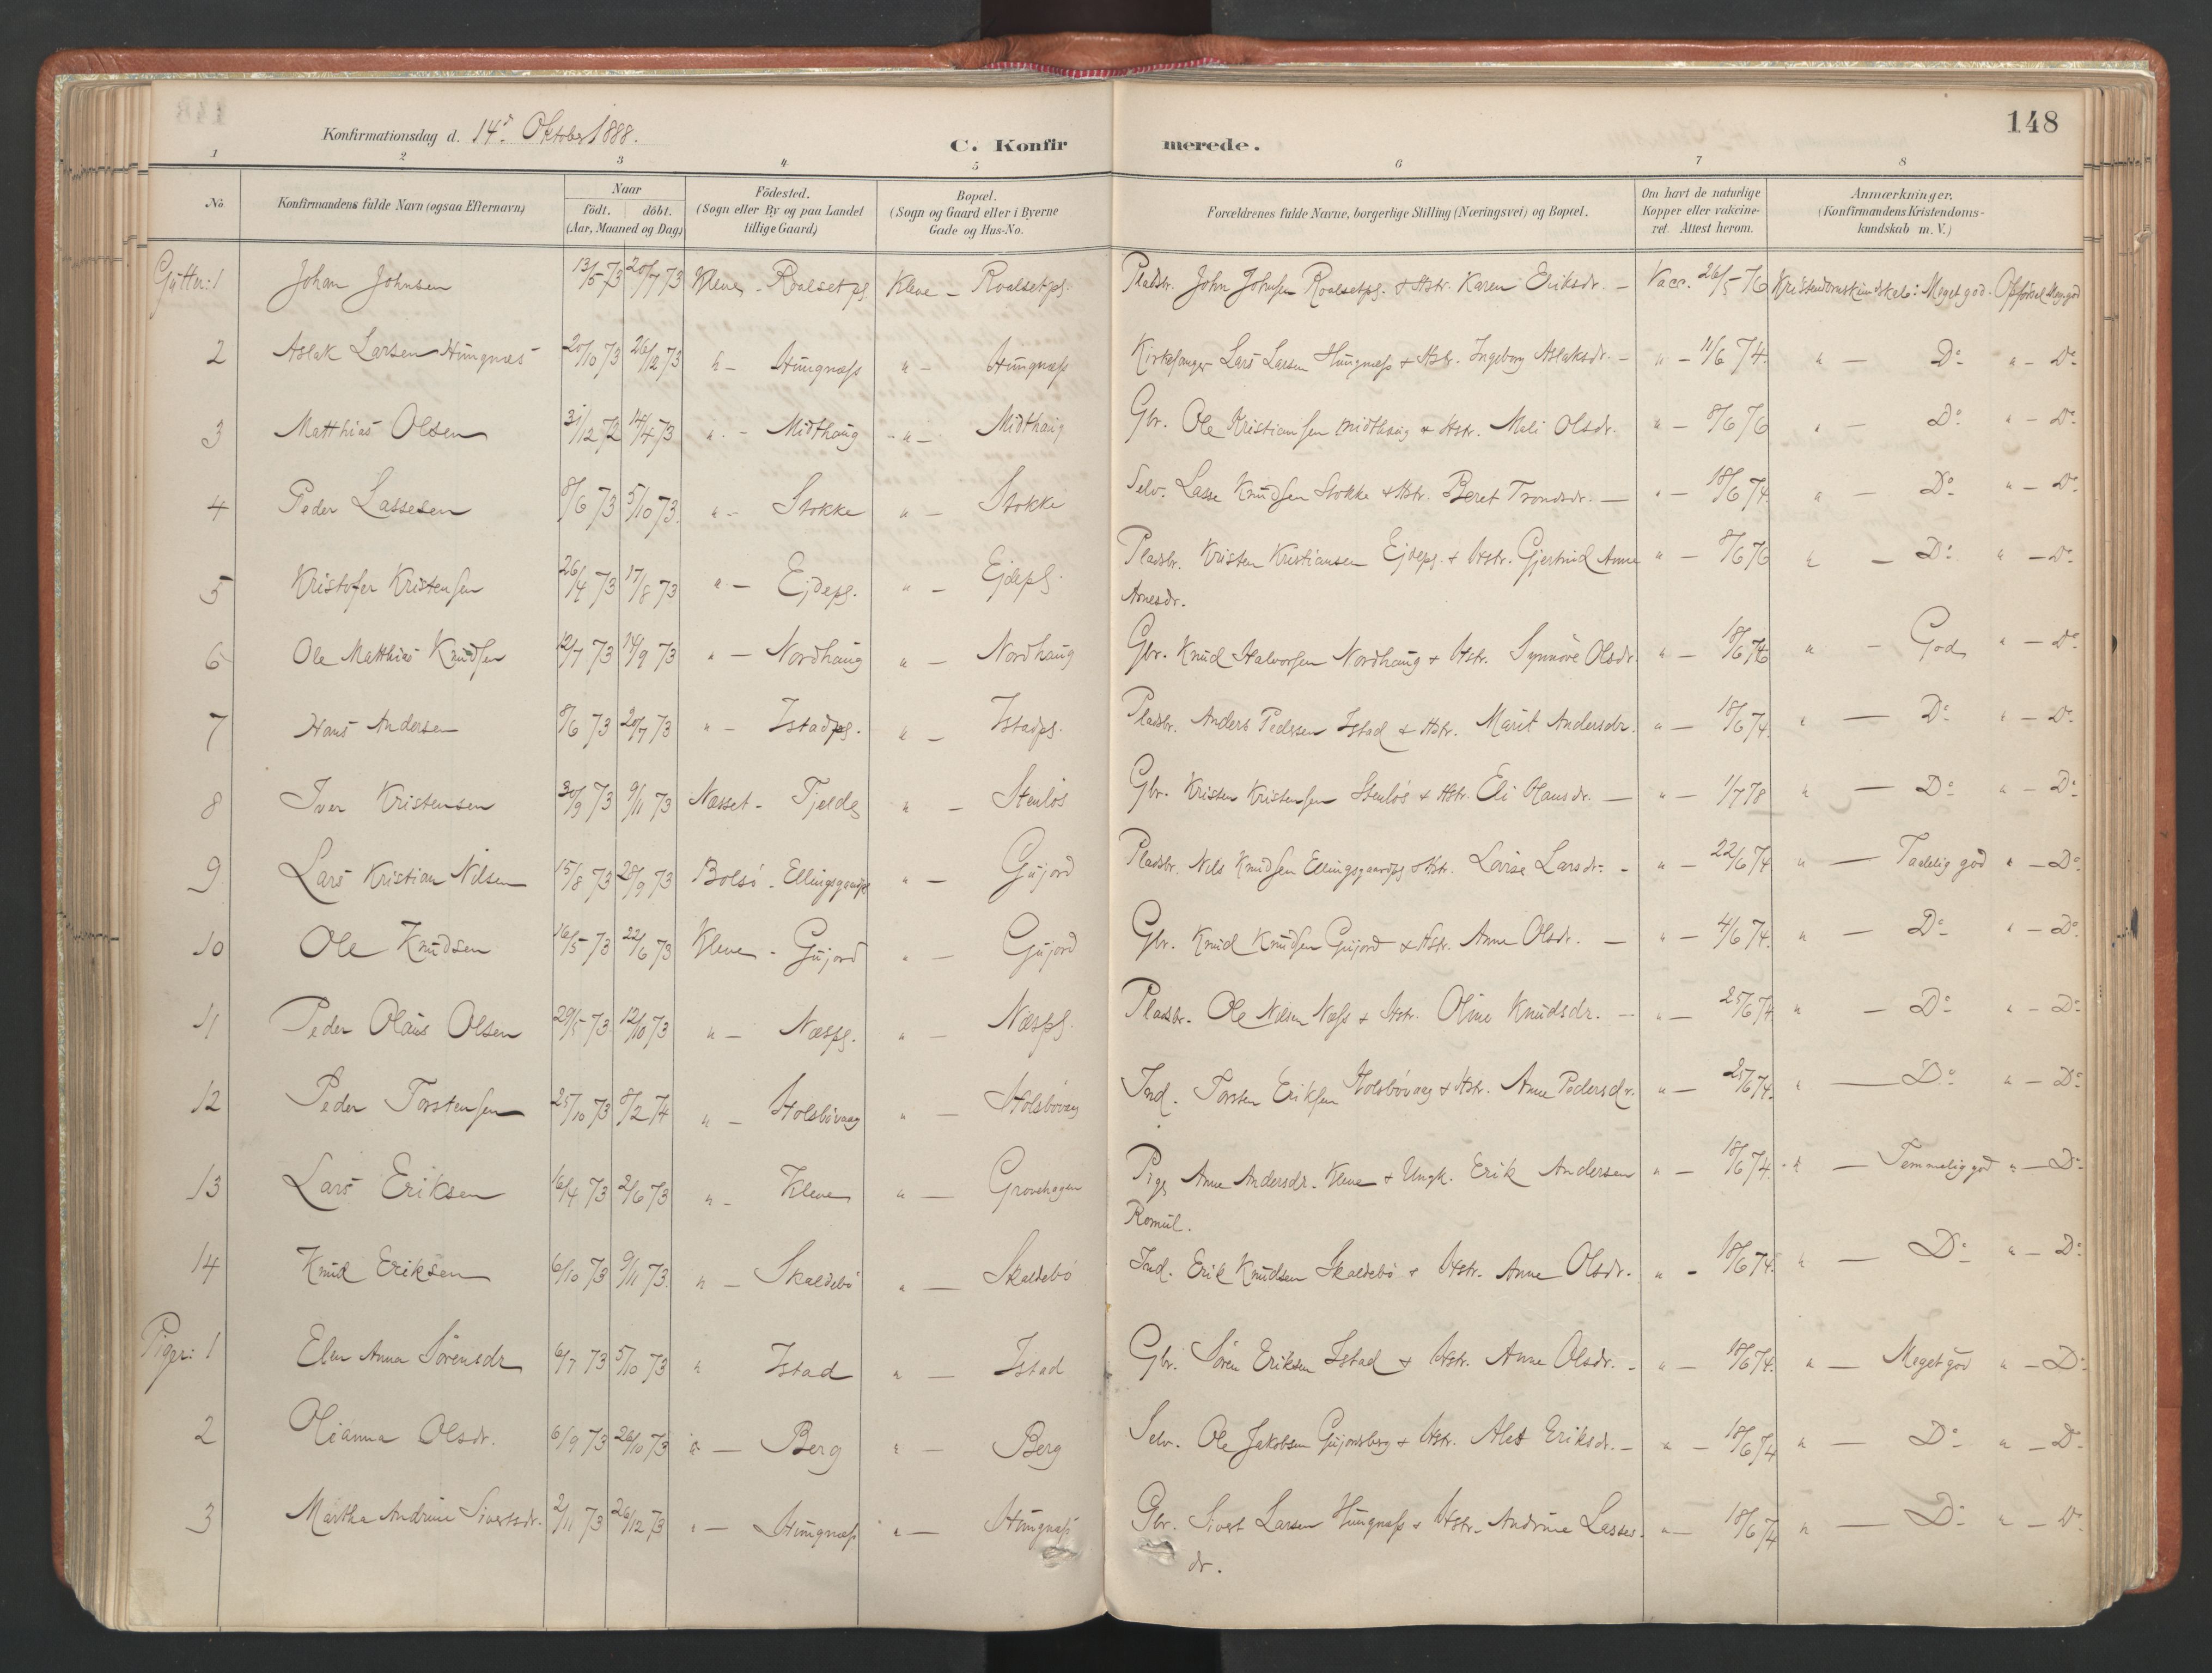 148
Konfirmationsdag d. 14d Oktober 1888.
C. Konfir merede.
1 2 3 4 5 6 7 8
No. Konfirmandens fulde Navn (ogsaa Efternavn) Naar födt. döbt. (Aar, Maaned og Dag) Födested. (Sogn eller By og paa Landet tillige Gaard) Bopæl. (Sogn og Gaard eller i Byerne Gade og Hus-No. Forældrenes fulde Navne, borgerlige Stilling (Næringsvei) og Bopæl. Om havt de naturlige Kopper eller vakcineret. Attest herom. Anmærkninger. (Konfirmandens Kristendomskundskab m. V.)
Gutter: 1 Johan Johnsen 13/5 73 20/7 73 Kleve - Roalsetpl. Kleve - Roalsetpl. Pladsbr. John Johnsen Roalsetpl. & Hstr. Karen Eriksdr. - Vacc. 26/5 76 Kristendomskundskab: Meget god. Opförsel Meg. god
2 Aslak Larsen Hungnæs 20/10 73 26/12 73 " - Hungnæss " - Hungnæss Kirkesanger Lars Larsen Hungnæss & Hstr. Ingeborg Aslaksdr. - " - 11/6 74. " - Do " - Do
3 Matthias Olsen 31/12 72 14/4 73 " - Midthaug " - Midthaug Gbr. Ole Kristiansen Midthaug & Hstr. Mali Olsdr. " - 8/6 76 " - Do " - Do
4 Peder Lassesen 8/6 73 5/10 73. " - Stokke " - Stokke Selv. Lasse Knudsen Stokke & Hstr. Beret Trondsdr. - " - 18/6 74. " - Do " - Do
5 Kristofer Kristensen 26/4 73 17/8 73 " - Ejdepl. " - Ejdepl. Pladsbr. Kristen Kristiansen Ejdepl. & Hstr. Gjertrud Anne " - 8/6 76 " - Do " - Do
Arnesdr.
6 Ole Matthias Knudsen 12/7 73 14/9 73 " - Nordhaug " - Nordhaug Gbr. Knud Halvorsen Nordhaug & Hstr. Synnöve Olsdr. " - 18/6 76 " - God " - Do
7 Hans Andersen 8/6 73 20/7 73 " - Istadpl. " - Istadpl. Pladsbr. Anders Pedersen Istad & Hstr. Marit Andersdr. " - 18/6 74. " - Do " - Do
8 Iver Kristensen 30/9 73 9/11 73 Næsset - Tjelde " - Stenlös Gbr. Kristen Kristensen Stenlös & Hstr. Eli Hansdr. - " - 1/7 78 " - Do " - Do
9 Lars Kristian Nilsen 15/8 73 28/9 73 Bolsö - Ellingsgaardpl " - Gujord Pladsbr. Nils Knudsen Ellingsgaardpl & Hstr. Lovise Larsdr. - " - 22/6 74 " - Tadelig god " - Do
10 Ole Knudsen 16/5 73 22/6 73 Kleve - Gujord " - Gujord Gbr. Knud Knudsen Gujord & Hstr. Anne Olsdr. - " - 4/6 74. " - Do " - Do
11 Peder Olaus Olsen 29/5 73 12/10 73 " - Næspl. " - Næspl. Pladsbr. Ole Nilsen Næss & Hstr. Oline Knudsdr. - " - 25/6 74 " - Do " - Do
12 Peder Torstensen 25/10 73 8/2 74 " - Holsbövaag " - Holsbövaag Ind. Torsten Eriksen Holsbövaag & Hstr. Anne Pedersdr. " - 25/6 74. " - Do " - Do
13 Lars Eriksen 16/4 73 2/6 73 " - Kleve " - Grovehagen Pige Anne Andersdr. Kleve & Ungk. Erik Andersen " - 18/6 74. " - Temmelig god " - Do
Romul.
14 Knud Eriksen 6/10 73 9/11 73. " - Skaldebö " - Skaldebö Ind. Erik Knudsen Skaldebö & Hstr. Anne Olsdr. " - 18/6 74. " - Do " - Do
Piger: 1 Elen Anna Sörensdr 6/7 73 5/10 73 " Istad " - Istad Gbr. Sören Eriksen Istad & Hstr. Anne Olsdr. - " - 18/6 74. " - Meget god " - Do
2 Olianna Olsdr. 6/9 73 26/10 73 " - Berg " - Berg Selv. Ole Jakobsen Gujordsberg & Hstr. Alet Eriksdr. - " - 18/6 74 " - Do " - Do
3 Martha Andrine Sivertsdr. 2/11 73 26/12 73 " - Hungnæss " - Hungnæss Gbr. Sivert Larsen Hungnæss & Hstr. Andrine Lasses- " - 18/6 74 " - Do " - Do
dr.